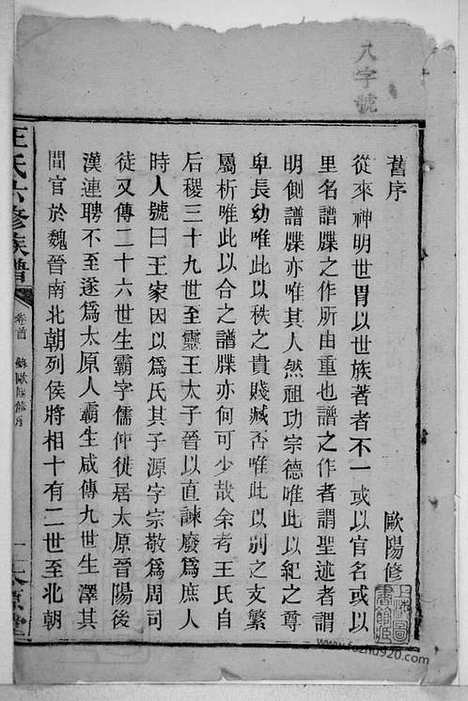 八字號
舊序
歐陽修
從來神明世胄以世族著者不一或以官名或以
里名譜牒之作所由重也譜之作者謂聖述者謂
明側譜牒亦唯其人然祖功宗德唯此以紀之尊
卑長幼唯此以秩之貴賤臧否唯此以別之支繁
屬析唯此以合之譜牒亦何可少哉余考王氏自
后稷三十九世至靈王太子晉以直諫廢爲庶人
時人號曰王家因以爲氏其子源字宗敬爲周司
徒又傳二十六世生霸字儒仲徙居太原晉陽後
漢連聘不至遂爲太原人霸生咸傳九世生澤其
間官於魏晉南北朝列侯將相十有二世至北朝
王氏六修族譜
卷首
歐陽修序
一
太原堂
www.fozhu920.com